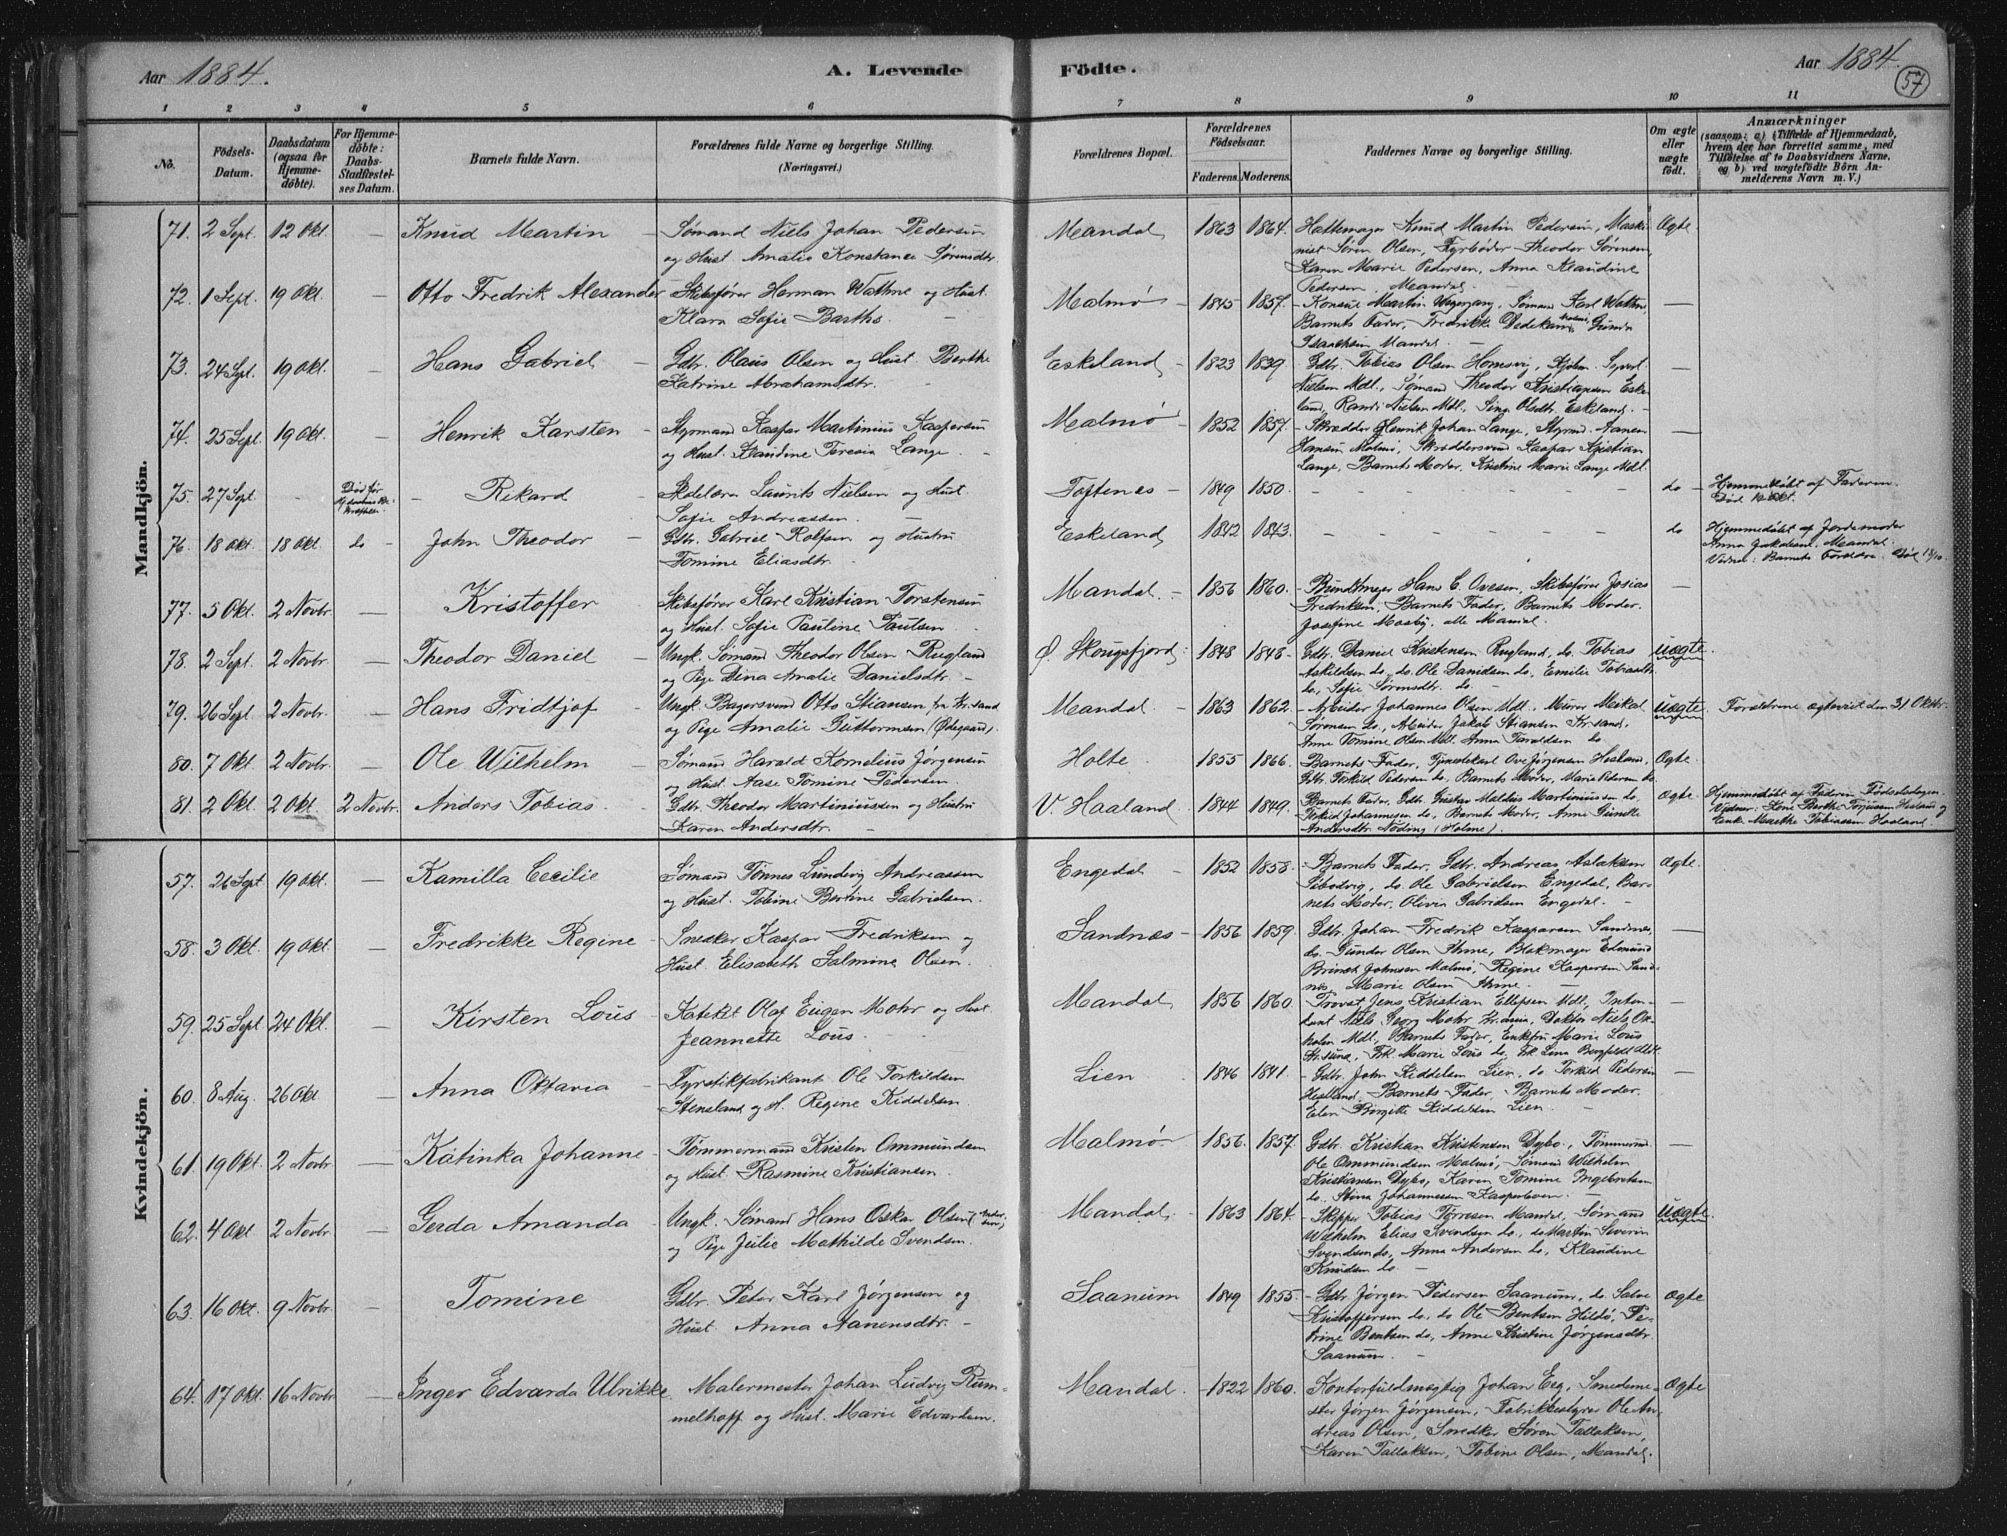 Aar 1884.
A. Levende Födte.
Aar 1884.
57
1 2 3 4 5 6 7 8 9 10 11
No.
Födsels-Datum.
Daabsdatum (ogsaa för Hjemmedöbte).
For Hjemmedöbte: Daabs-Stadfæstelses Datum.
Barnets fulde Navn.
Forældrenes fulde Navne og borgerlige Stilling. (Næringsvei.)
Forældrenes Bopæl.
Forældrenes Födselsaar.
Faderens. Moderens.
Faddernes Navne og borgerlige Stilling.
Om ægte eller uægte födt.
Anmærkninger
(saasom: a) i Tilfælde af Hjemmedaab, hvem der har forrettet samme, med Tilföielse af to Daabsvidners Navne, og b) ved uægtefödte Börn Anmelderens Navn m. V.)
Mandkjön.
71. 2 Sept. 12 Okt. — Knud Martin — Sømand Niels Johan Pedersen
og Hust. Amalie Konstance Sørensdtr.
Mandal 1863 1864. Hattemager Knud Martin Pedersen, Maski-
nist Søren Olsen, Fyrbøder Theodor Sørensen,
Karen Marie Pedersen, Anna Klaudine
Pedersen, Mandal. Ægte
72. 1 Sept. 19 Okt. — Otto Fredrik Alexander Skibsfører Herman Wathne og Hust.
Klara Sofie Barths
Malmø 1845 1857. Konsul Martin Sømand Karl Wathne
Barnets Fader, Fredrikke Gunda
Isaachsen Mandal —
73. 24 Sept. 19 Okt. — Hans Gabriel — Gdbr. Olaus Olsen og Hust. Berthe
Katrine Abrahamsdtr.
Eskeland — 1823 1839. Gdbr. Tobias Olsen Homsvig,
Nielsen Mdl., Sømand Theodor Kristiansen Eske-
land, Randi Nielsen Mdl., Sina Olsdtr. Eskeland. —
74. 25 Sept. 19 Okt. — Henrik Karsten — Styrmand Kaspar Martinius Kaspersen
og Hust. Klaudine Teresia Lange
Malmø 1852 1857. Skrædder Henrik Johan Lange, Styrmd. Aanen
Hansen Malmø, Skræddersvend Kaspar Kristian
Lange, Barnets Moder, Kristine Marie Lange Mdl. —
75. 27 Sept. — Død før — Rikard — Laurits Nielsen og Hust.
Sofie Andreassen.
Toftenes — 1849 1850. do — Hjemmedøbt af Faderen.
Død Okt.
76. 18 Okt. 18 Okt. do — John Theodor — Gdbr. Gabriel Rolfsen og Hustru
Tomine Eliasdtr.
Eskeland 1842 1843. do Hjemmedøbt af Jordemoder
Anna Jakobsen, Mandal.
Vidner: Barnets Forældre. Død 18/10.
77. 5 Okt. 2 Novbr. — Kristoffer Skibsfører Karl Kristian Torstensen
og Hust. Sofie Pauline Paulsen
Mandal. — 1856 1860. — Bundtmager Hans C. Ovesen, Skibsfører Josias
Fredriksen, Barnets Fader, Barnets Moder,
Josefine Mosby, alle Mandal. —
78. 2 Sept. 2 Novbr. — Theodor Daniel — Ungk. Sømand Theodor Olsen Rugland
og Pige Dina Amalie Danielsdtr. —
Ø. Skougsfjord: 1848 1848. Gdbr. Daniel Kristensen Rugland, do. Tobias
Askildsen do, do. Ole Danielsen do, Emilie Tobiasdtr.
do, Sofie Sørensdtr. do — uægte.
79. 26 Sept. 2 Novbr. — Hans Fridtjof — Ungk. Bagersvend Otto Stiansen fra Kr.sand
og Pige Amalie Guttormsen (Ødegaard).
Mandal. — 1863 1862. — Arbeider Johannes Olsen Mdl., Murer Meikal
Sørensen do, Arbeider Jakob Stiansen Kr.sand,
Anne Tomine Olsen Mdl. Anna Taraldsen do uægte Forældrene ægteviet den 31 Oktbr.
80. 7 Okt. 2 Novbr. — Ole Wilhelm Sømand Harald Kornelius Jørgensen
og Hust. Aase Tomine Pedersen
Holte — 1855 1866. Barnets Fader, Tjenestekarl Ove Jørgensen Hesland,
Gdbr. Torkild Pedersen do, Barnets Moder, Marie Pedersen do. Ægte
81. 2 Okt. 2 Okt. 2 Novbr. Anders Tobias. Gdbr. Theodor Martiniussen og Hustru
Karen Andersdtr. —
V. Haaland 1844 1849. Barnets Fader, Gdbr. Gustav Maldus Martiniussen do,
Torkild Johannesen do, Barnets Moder, Anne Gunelle
Andersdtr. Nøding (Holme). Ægte. Hjemmedøbt af Faderen Fødselsdagen.
Vidner: Kone Berthe Torjussen Hesland og
Enke Marthe Tobiassen Haaland.
Kvindekjön.
57. 26 Sept 19 Okt. — Kamilla Cecilie Sømand Tønnes Lundevig Andreassen
og Hust. Tobine Bertine Gabrielsen.
Engedal — 1852 1858. Barnets Fader, Gdbr. Andreas Aslaksen
do Ole Gabrielsen Engedal, Bar-
nets Moder, Olivia Gabrielsen Engedal. — Ægte.
58. 3 Okt. 19 Okt. — Fredrikke Regine — Snedker Kaspar Fredriksen og
Hust. Elisabeth Salmine Olsen.
Sandnæs — 1856 1859. Gdbr. Johan Fredrik Kaspersen Sandnæs,
do. Gunder Olsen Blokmager Edmund
Johnsen Malmø, Regine Kaspersen Sand-
næs, Marie Olsen —
59. 25 Sept 24 Okt. — Kirsten Lous — Kateket Olaf Eugen Mohr og Hust.
Jeannette Lous.
Mandal 1856 1860. Provst Jens Kristian Ellefsen Mdl., Inten-
dant Niels Georg Mohr Kr.ania, Doktor Niels On-
holen Mdl., Barnets Fader, Enkefru Marie Lous
Kr.sund, Frk. Marie Lous do, Frk. Lina —
60. 8 Aug. 26 Okt. — Anna Oktavia — Fyrstikfabrikant Ole Torkildsen
Stensland og H. Regine Kiddelsen.
Lien 1846 1841. Gdbr. John Kiddelsen Lien, do Torkild Pedersen
Hesland, Barnets Fader, Barnets Moder,
Elen Birgitte Kiddelsen Lien. —
61. 19 Okt. 2 Novbr. — Katinka Johanne — Tømmermand Kristen Ommundsen
og Hust. Rasmine Kristiansen.
Malmø 1856. 1857. Gdbr. Kristian Kristensen Dybo, Tømmermd.
Ole Ommundsen Malmø, Sømand Wilhelm
Kristiansen Dybo, Karen Tomine Ingebretsen
do. Stina Johannessen —
62. 4 Okt. 2 Novbr. — Gerda Amanda — Ungk. Sømand Hans Oskar Olsen
og Pige Julie Mathilde Svendsen.
Mandal 1863 1864. Skipper Tobias Tørresen Mandal, Sømand
Wilhelm Elias Svendsen do, do Martin Severin
Svendsen do, Anna Andersen do, Klaudine
Knudsen do — uægte.
63. 16 Okt. 9 Novbr. — Tomine Gdbr. Peter Karl Jørgensen og
Hust. Anna Aanensdtr. —
Saanum 1849 1855. Gdbr. Jørgen Pedersen Saanum, do. Salve
Kristoffersen do, do Ole Bentsen Hildø, Pe-
trine Bentsen do, Anne Kristine Jørgensdtr.
Saanum — Ægte
64. 17 Okt. 16 Novbr. — Inger Edvarda Ulrikke. Malermester Johan Ludvig Rum-
melhoff og Hust. Marie Edvardsen.
Mandal. — 1822 1860. Kontorfuldmægtig Johan Eeg, Smedeme-
ster Jørgen Jørgensen, Fabrikbestyrer Ole An-
dreas Olsen, Snedker Søren Tallaksen,
Karen Tallaksen, Tobine Olsen, Mandal. Ægte